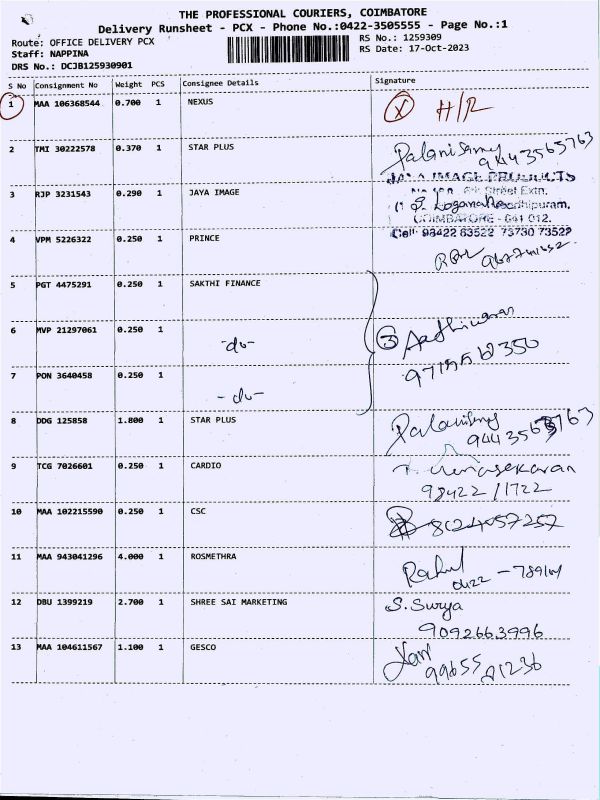 THE PROFESSIONAL COURIERS, COIMBATORE
Delivery Runsheet - PCX - Phone No.:0422-3505555 - Page No.:1
Route: OFFICE DELIVERY PCX
Staff: NAPPINA
DRS No.: DCJB125930901
RS No.: 1259309
RS Date: 17-Oct-2023
S No Consignment No Weight PCS Consignee Details Signature
1 MAA 106368544 0.700 1 NEXUS X H/R
2 TMI 30222578 0.370 1 STAR PLUS Palanisamy 9443565763
JAYA IMAGE PRODUCTS
3 RJP 3231543 0.290 1 JAYA IMAGE Street Extn.
COIMBATORE - 641 012.
Cell: 98422 63522 73730 73522
4 VPM 5226322 0.250 1 PRINCE
5 PGT 4475291 0.250 1 SAKTHI FINANCE
6 MVP 21297061 0.250 1 -do- 3
7 PON 3640458 0.250 1 -do-
8 DDG 125858 1.800 1 STAR PLUS Palanisamy
9 TCG 7026601 0.250 1 CARDIO
98422 /1722
10 MAA 102215590 0.250 1 CSC 8124057257
11 MAA 943041296 4.000 1 ROSMETHRA Rahul
0422 -
12 DBU 1399219 2.700 1 SHREE SAI MARKETING S. Surya
9092663996
13 MAA 104611567 1.100 1 GESCO
99655 21236